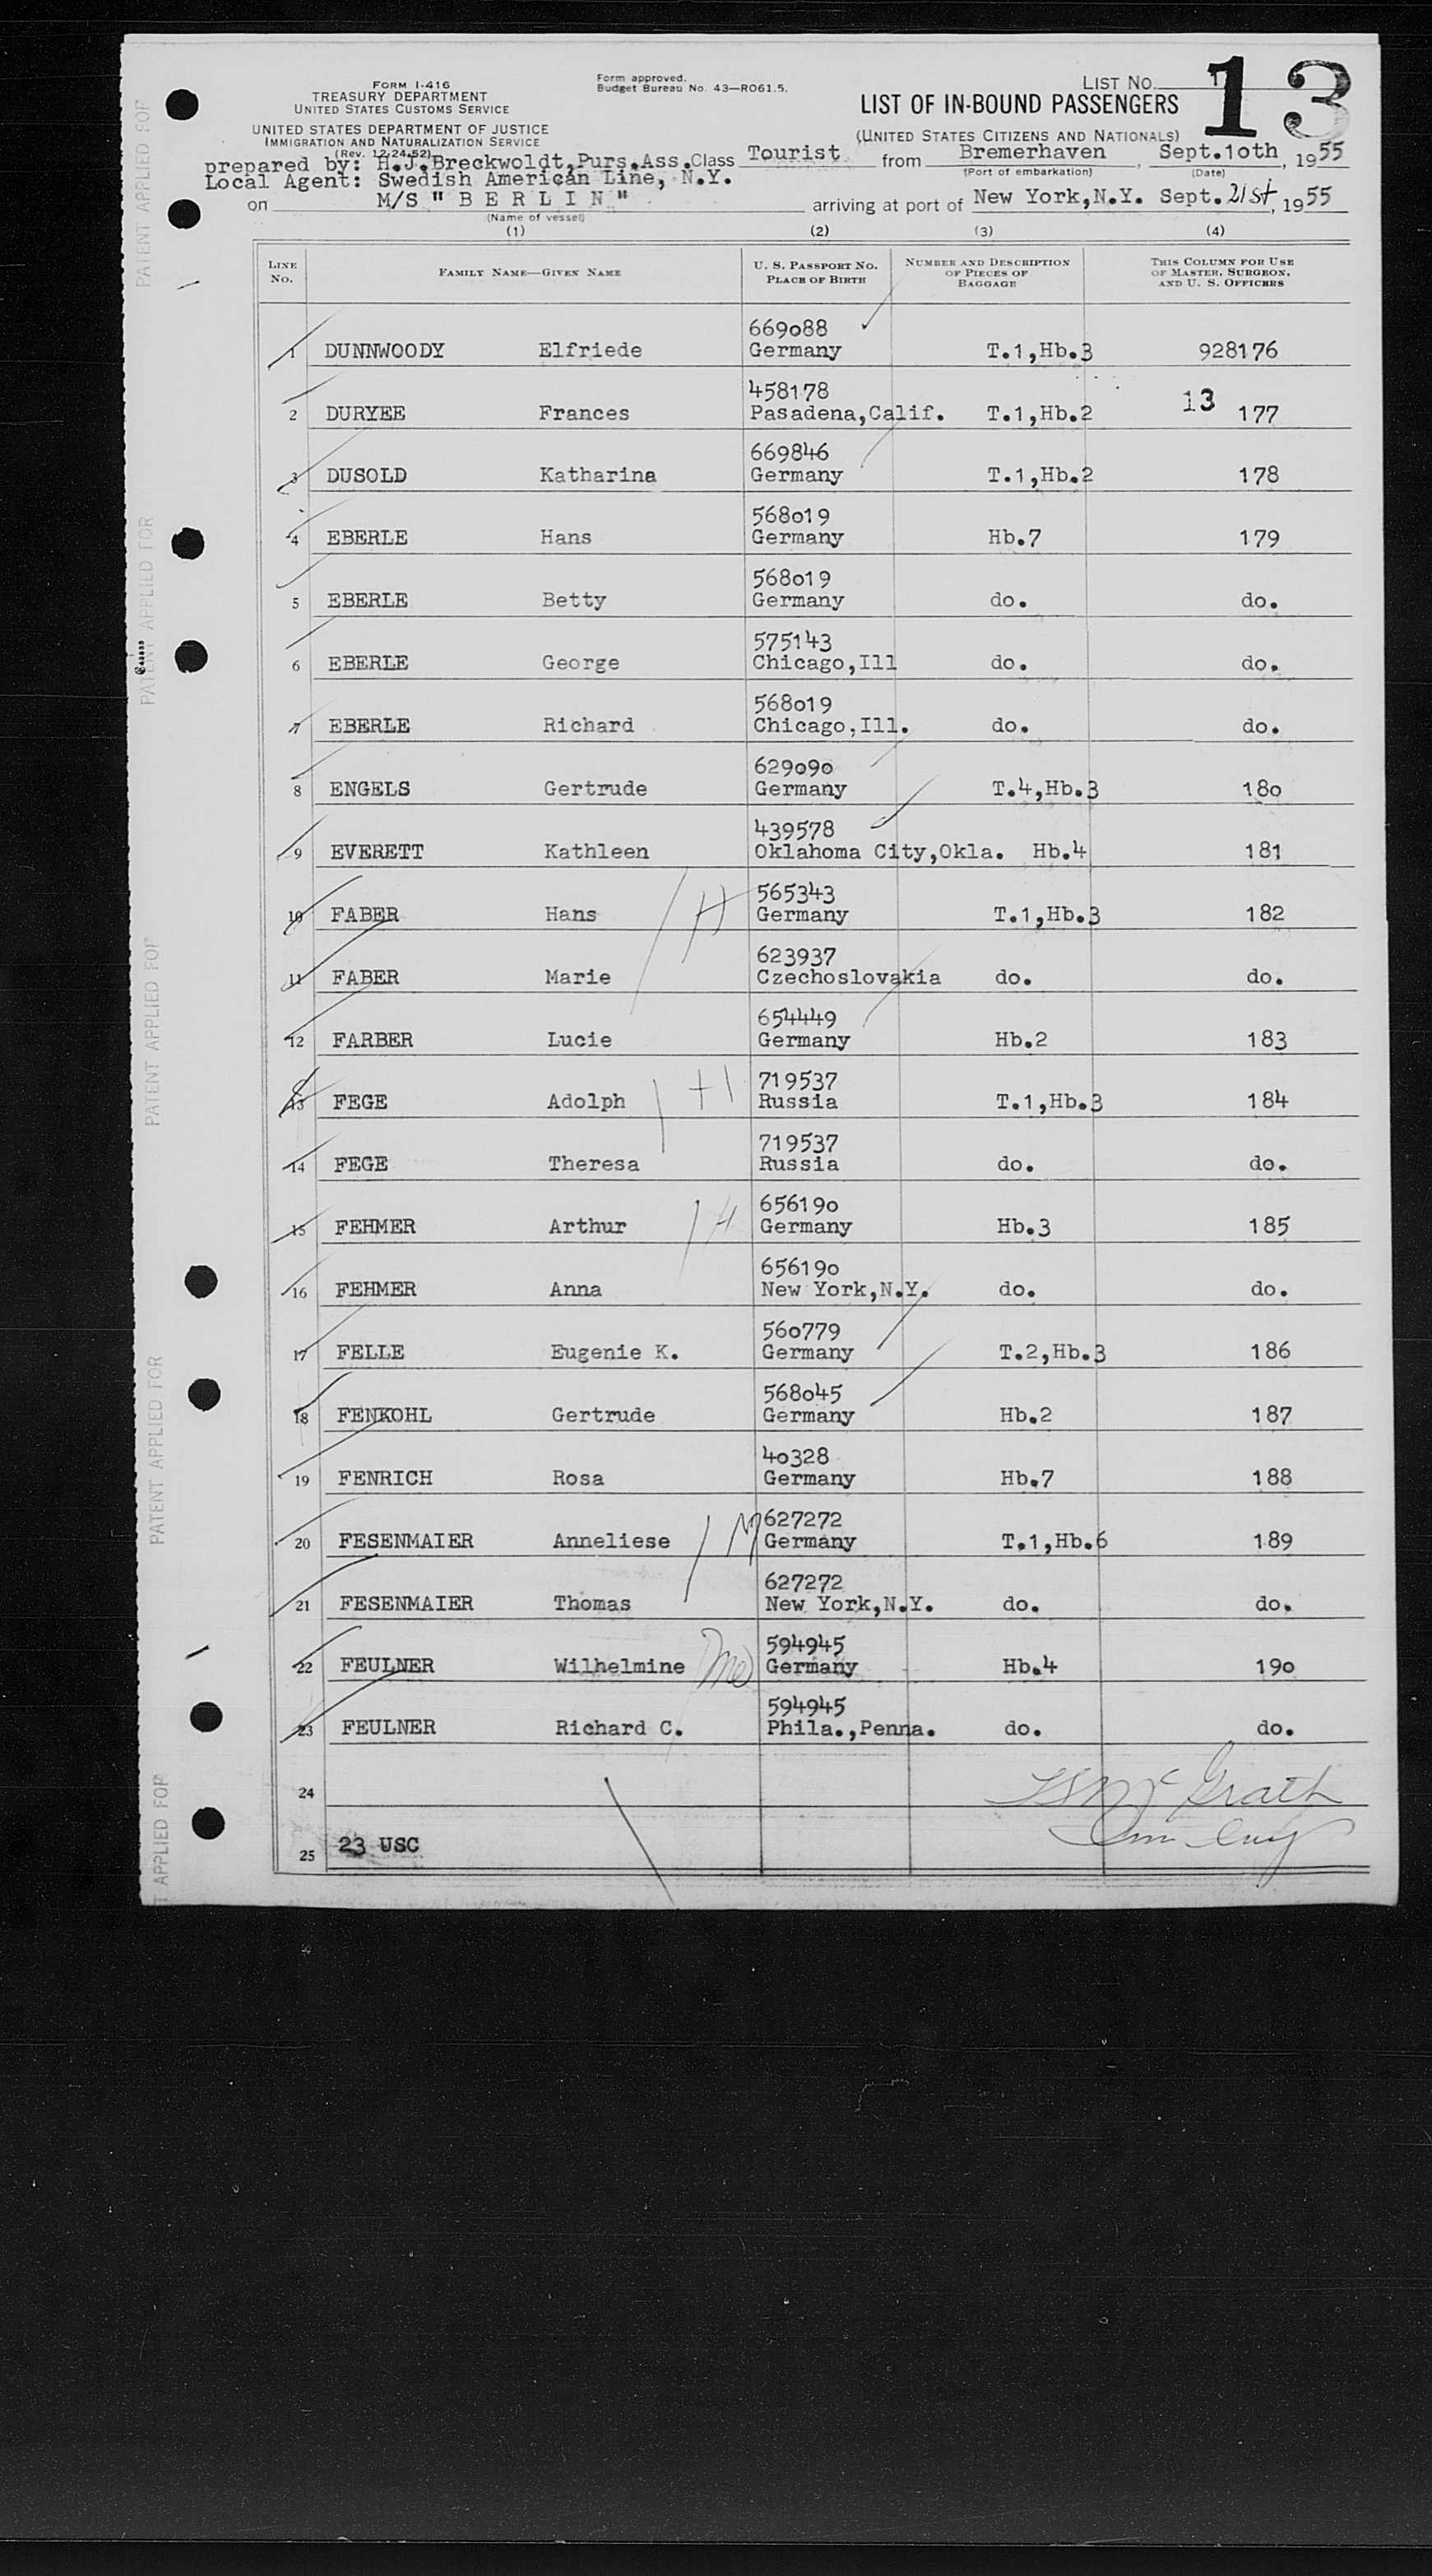 FORM I-416
TREASURY DEPARTMENT
UNITED STATES CUSTOMS SERVICE
UNITED STATES DEPARTMENT OF JUSTICE
IMMIGRATION AND NATURALIZATION SERVICE
(Rev. 12-24-52)
Form approved.
Budget Bureau No. 43—RO61.5.
LIST No. 1
13
LIST OF IN-BOUND PASSENGERS
(UNITED STATES CITIZENS AND NATIONALS)
prepared by: H.J.Breckwoldt,Purs.Ass. Class Tourist from Bremerhaven, Sept.10th, 1955
(Port of embarkation) (Date)
Local Agent: Swedish American Line, N.Y.
on M/S "BERLIN" arriving at port of New York,N.Y. Sept.21st, 1955
(Name of vessel)
(1) (2) (3) (4)
LINE No. FAMILY NAME—GIVEN NAME U. S. PASSPORT NO. PLACE OF BIRTH NUMBER AND DESCRIPTION OF PIECES OF BAGGAGE THIS COLUMN FOR USE OF MASTER, SURGEON, AND U. S. OFFICERS
669088
1 DUNNWOODY Elfriede Germany T.1,Hb.3 928176
458178
2 DURYEE Frances Pasadena,Calif. T.1,Hb.2 13 177
669846
3 DUSOLD Katharina Germany T.1,Hb.2 178
568019
4 EBERLE Hans Germany Hb.7 179
568019
5 EBERLE Betty Germany do. do.
575143
6 EBERLE George Chicago,Ill do. do.
568019
7 EBERLE Richard Chicago,Ill. do. do.
629090
8 ENGELS Gertrude Germany T.4,Hb.3 180
439578
9 EVERETT Kathleen Oklahoma City,Okla. Hb.4 181
565343
10 FABER Hans Germany T.1,Hb.3 182
623937
11 FABER Marie Czechoslovakia do. do.
654449
12 FARBER Lucie Germany Hb.2 183
719537
13 FEGE Adolph Russia T.1,Hb.3 184
719537
14 FEGE Theresa Russia do. do.
656190
15 FEHMER Arthur Germany Hb.3 185
656190
16 FEHMER Anna New York,N.Y. do. do.
560779
17 FELLE Eugenie K. Germany T.2,Hb.3 186
568045
18 FENKOHL Gertrude Germany Hb.2 187
40328
19 FENRICH Rosa Germany Hb.7 188
627272
20 FESENMAIER Anneliese Germany T.1,Hb.6 189
627272
21 FESENMAIER Thomas New York,N.Y. do. do.
594945
22 FEULNER Wilhelmine Germany Hb.4 190
594945
23 FEULNER Richard C. Phila.,Penna. do. do.
24
McGrath
25 23 USC
PATENT APPLIED FOR
PATENT APPLIED FOR
PATENT APPLIED FOR
PATENT APPLIED FOR
T APPLIED FOR